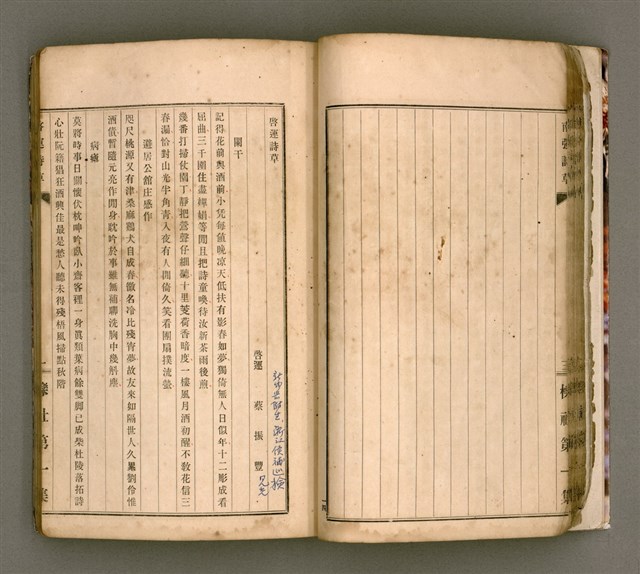 啓運詩草
啓運　蔡振豐
闌干
記得花前與酒前小凭每値晚凉天低扶有影春如夢獨倚無人日似年十二彫成看
屈曲三千圍住盡嬋娟等閒且把詩童喚待汝新茶雨後煎
幾番打掃仗園丁靜把鶯聲仔細聽十里芰荷香暗度一樓風月酒初醒不敎花信三
春漏恰對山光半角靑入夜有人閒倚久笑看團扇撲流螢
避居公館庄感作
咫尺桃源又有津桑麻鷄犬自成春微名冷比殘宵夢故友來如隔世人久累劉伶惟
酒債暫隨元亮作閒身耽吟於事雖無補聊洗胸中幾斛塵
病瘧
莫將時事日關懷伏枕呻吟臥小齋客裡一身眞類葉病餘雙脚已成柴杜陵落拓詩
心壯阮籍猖狂酒興佳最是愁人聽未得殘梧風掃點秋階
啓運詩草
櫟社第一集
南强詩草
櫟社第一集